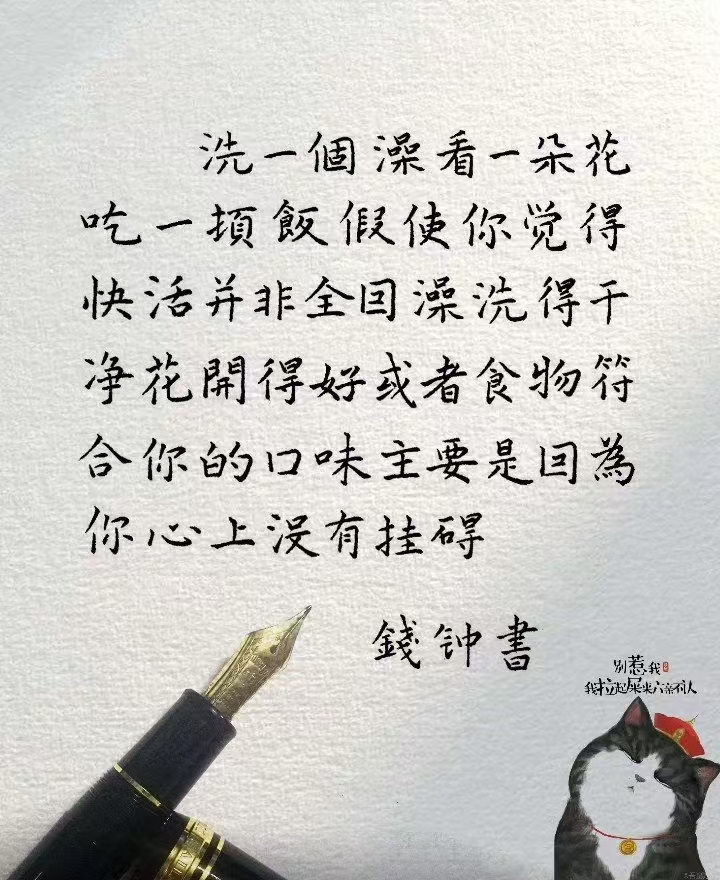 洗一個澡看一朵花
吃一頓飯假使你觉得
快活并非全因澡洗得干
净花開得好或者食物符
合你的口味主要是因為
你心上沒有挂碍
錢钟書
别惹我
我拉起屎来六亲不认